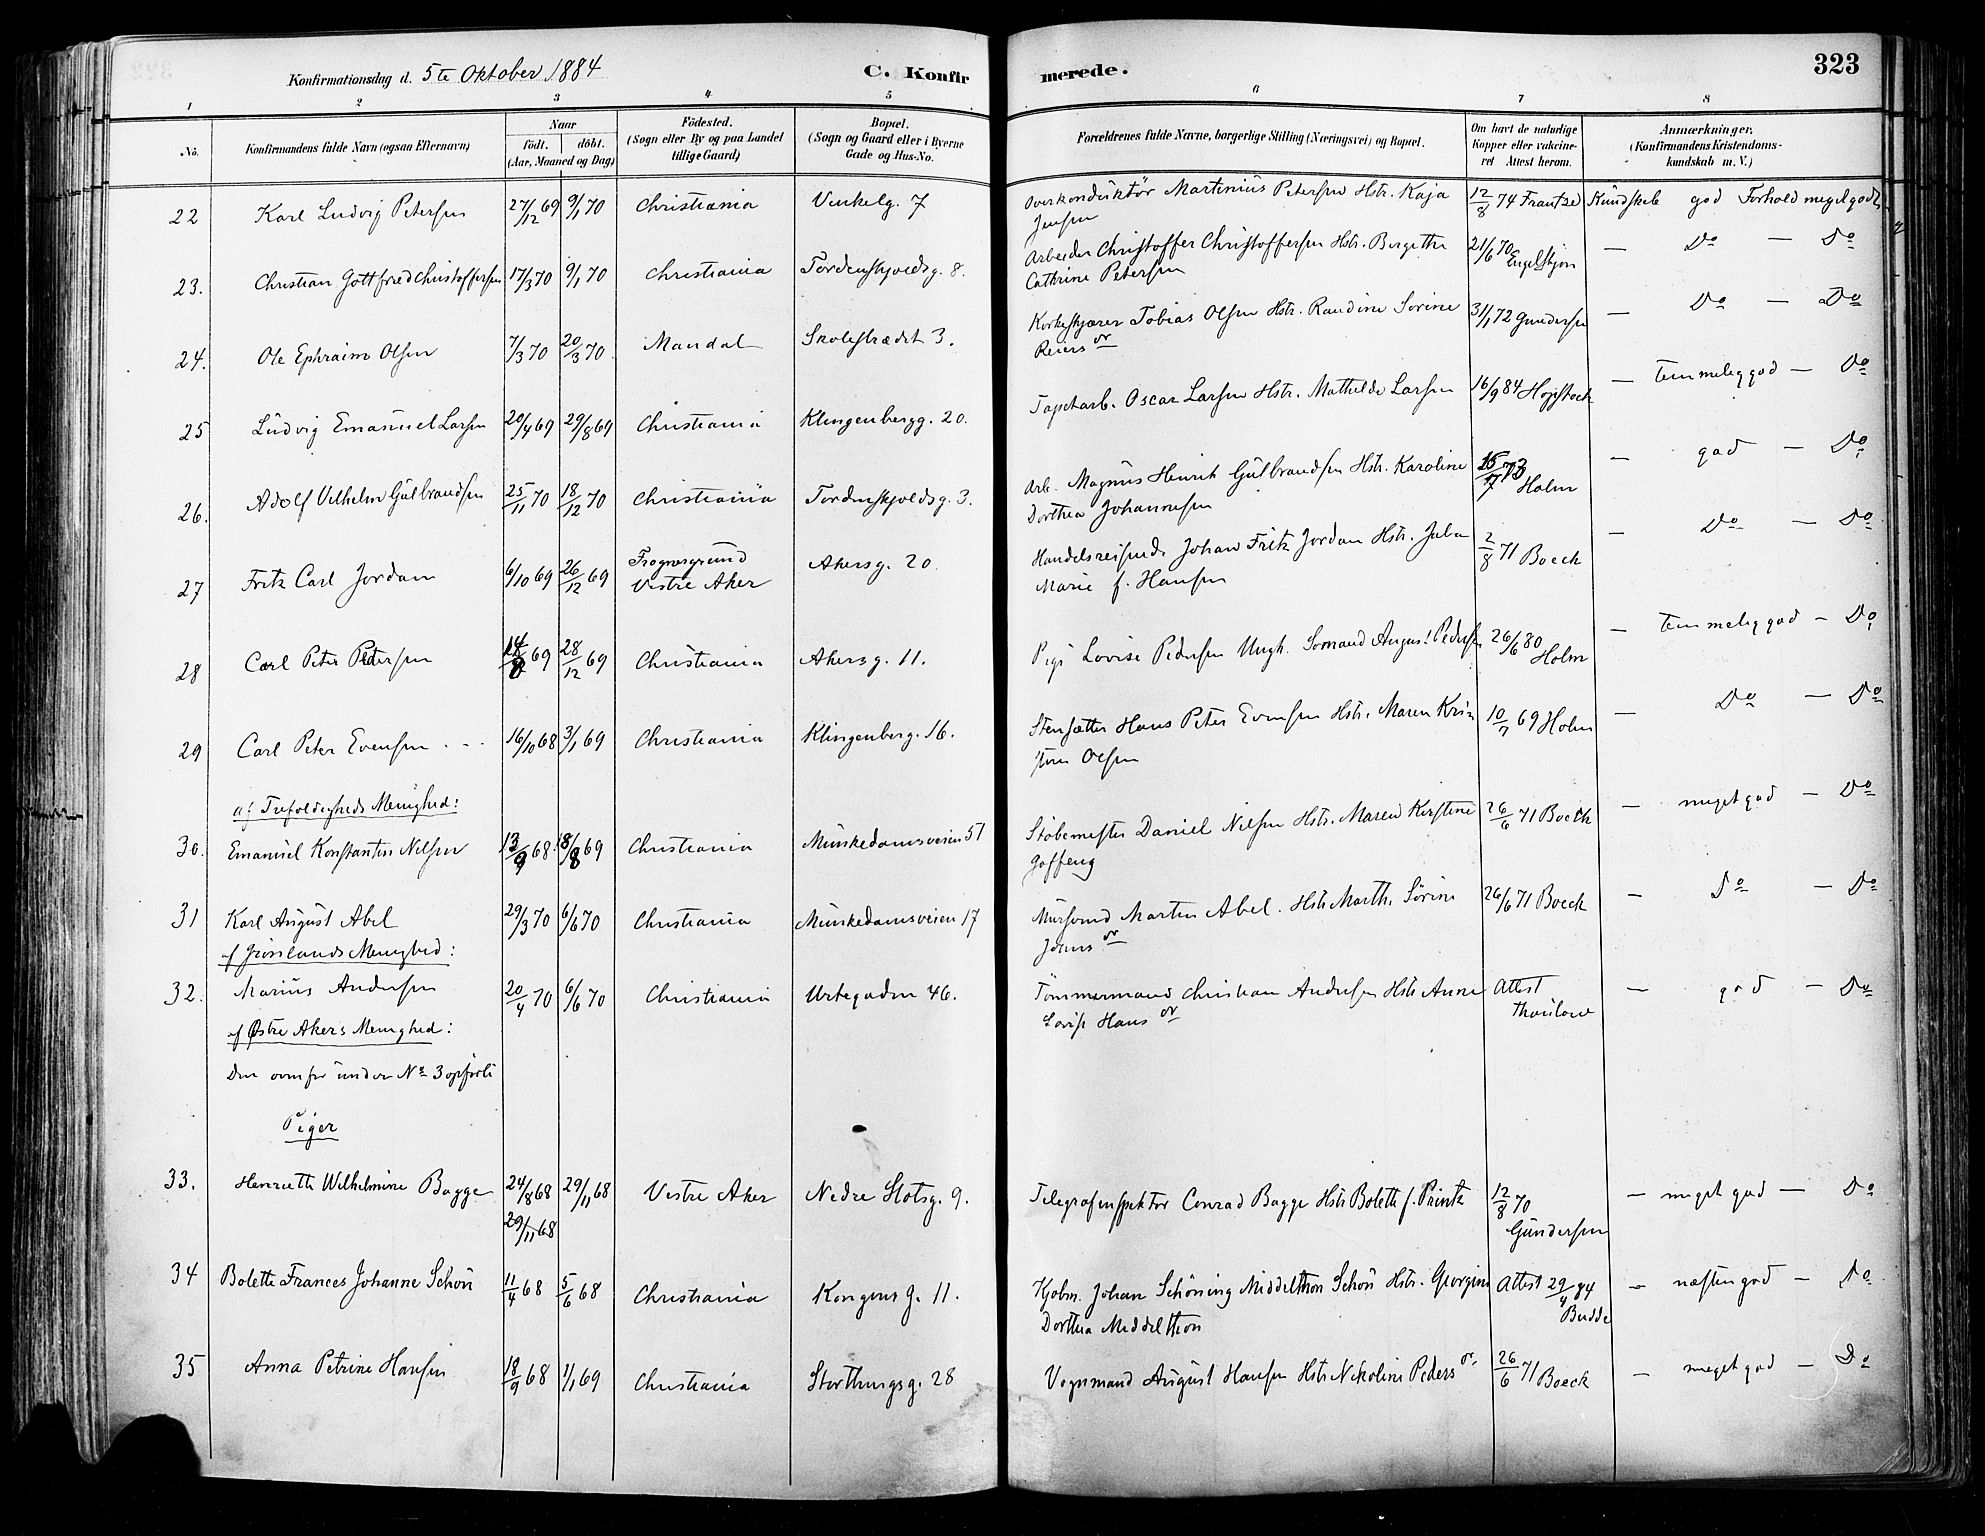 Konfirmationsdag d. 5te Oktober 1884 C. Konfirmerede. 323
1 2 3 4 5 6 7 8
No. Konfirmandens fulde Navn (ogsaa Efternavn) Naar født. døbt. (Aar, Maaned og Dag) Fødested. (Sogn eller By og paa Landet tillige Gaard) Bopæl. (Sogn og Gaard eller i Byerne Gade og Hus-No. Forældrenes fulde Navne, borgerlige Stilling (Næringsvei) og Bopæl. Om havt de naturlige Kopper eller vakcineret Attest herom. Anmærkninger. (Konfirmandens Kristendomskundskab m. V.)
22 Karl Ludvig Petersen 27/12 69 9/1 70 Christiania Vinkelg. 7 Overkonduktør Martinius Petersen Hstr. Kaja Jensen 12/8 74 Frantze Kundskab god Forhold meget godt
23. Christian Gottfried Christoffersen 17/3 70 9/1 70 Christiania Tordenskjoldsg. 8. Arbeider Christoffer Christoffersen Hstr. Bergethe Cathrine Petersen 21/6 70 Engelskjøn — Do — Do
24. Ole Ephraim Olsen 7/3 70 20/3 70 Mandal Skolestrædet 3. Korkeskjærer Tobias Olsen Hstr. Randine Sørine Reiersdr 31/1 72 Gundersen — Do — Do
25 Ludvig Emanuel Larsen 20/4 69 29/8 69 Christiania Klingenbergg. 20. Tapetarb. Oscar Larsen Hstr. Mathilde Larsen 16/9 84 Høystock — temmelig god — Do
26. Adolf Vilhelm Gulbrandsen 25/11 70 18/12 70 Christiania Tordenskjoldsg. 3. Arb. Magnus Henrik Gulbrandsen Hstr. Karoline Dorthea Johannesen 15/7 73 Holm — god — Do
27 Fritz Carl Jordan 6/10 69 26/12 69 Frognergrund Vestre Aker Akersg. 20 Handelsreisende Johan Fritz Jordan Hstr. Julie Marie f. Hansen 2/8 71 Boeck — Do — Do
28 Carl Peter Pedersen 14/8 69 28/12 69 Christiania Akersg. 11. Pige Lovise Pedersen Ungk. Sømand August Pedersen 26/6 80 Holm — temmelig god — Do
29 Carl Peter Evensen 16/10 68 3/1 69 Christiania Klingenberg. 16. Stensætter Hans Peter Evensen Hstr. Maren Kristine Olsen 10/7 69 Holm — Do — Do
af Trefoldigheds Menighed:
30. Emanuel Konstantin Nilsen 13/9 68 18/8 69 Christiania Munkedamsveien 51 Støbemester Daniel Nilsen Hstr. Maren Kirstine Goffeng 26/6 71 Boeck — meget god — Do
31 Karl August Abel 29/3 70 6/6 70 Christiania Munkedamsveien 17 Mursvend Martin Abel. Hstr Marth. Sørine Jensdr 26/6 71 Boeck — Do — Do
af Grønlands Menighed:
32. Marius Andersen 20/4 70 6/6 70 Christiania Urtegaden 46. Tømmermand Christian Andersen Hstr Anne Lovise Hansdr Attest Thaulow — god — Do
af Østre Akers Menighed:
Den ovenfor under No 3 opførte
Piger
33. Henriette Wilhelmine Bagge 24/8 68 29/11 68 Vestre Aker Nedre Slotsg. 9. Telegrafinspektør Conrad Bagge Hstr Bolette f. Printz 12/8 70 Gundersen — meget god — Do
29/11 68
34 Bolette Frances Johanne Schøn 11/4 68 5/6 68 Christiania Kongens G. 11. Kjøbm. Johan Schöning Middelthon Schøn Hstr. Georgine Dorthea Middelthon Attest 29/4 84 Budde — næsten god — Do
35 Anna Petrine Hansen 18/9 68 1/1 69 Christiania Storthingsg. 28 Vognmand August Hansen Hstr Nikoline Pedersdr. 26/6 71 Boeck — meget god — Do